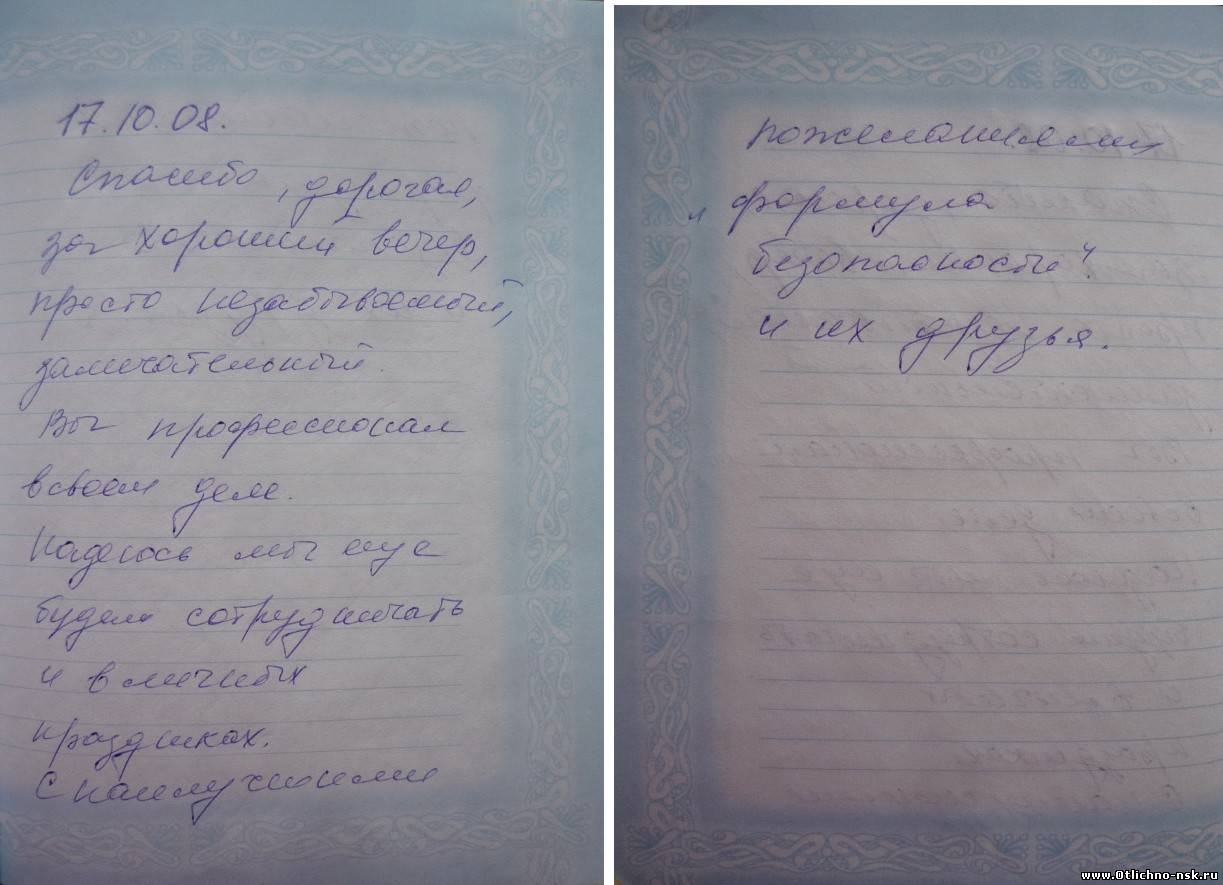 17.10.08.
Спасибо, дорогая,
за хороший вечер,
просто незабываемый,
замечательный.
Вы профессионал
в своем деле.
Надеюсь мы еще
будем сотрудничать
и в личных
праздниках.
С наилучшими
пожеланиями
"формула
безопасности"
и их друзья.
www.Otlichno-nsk.ru